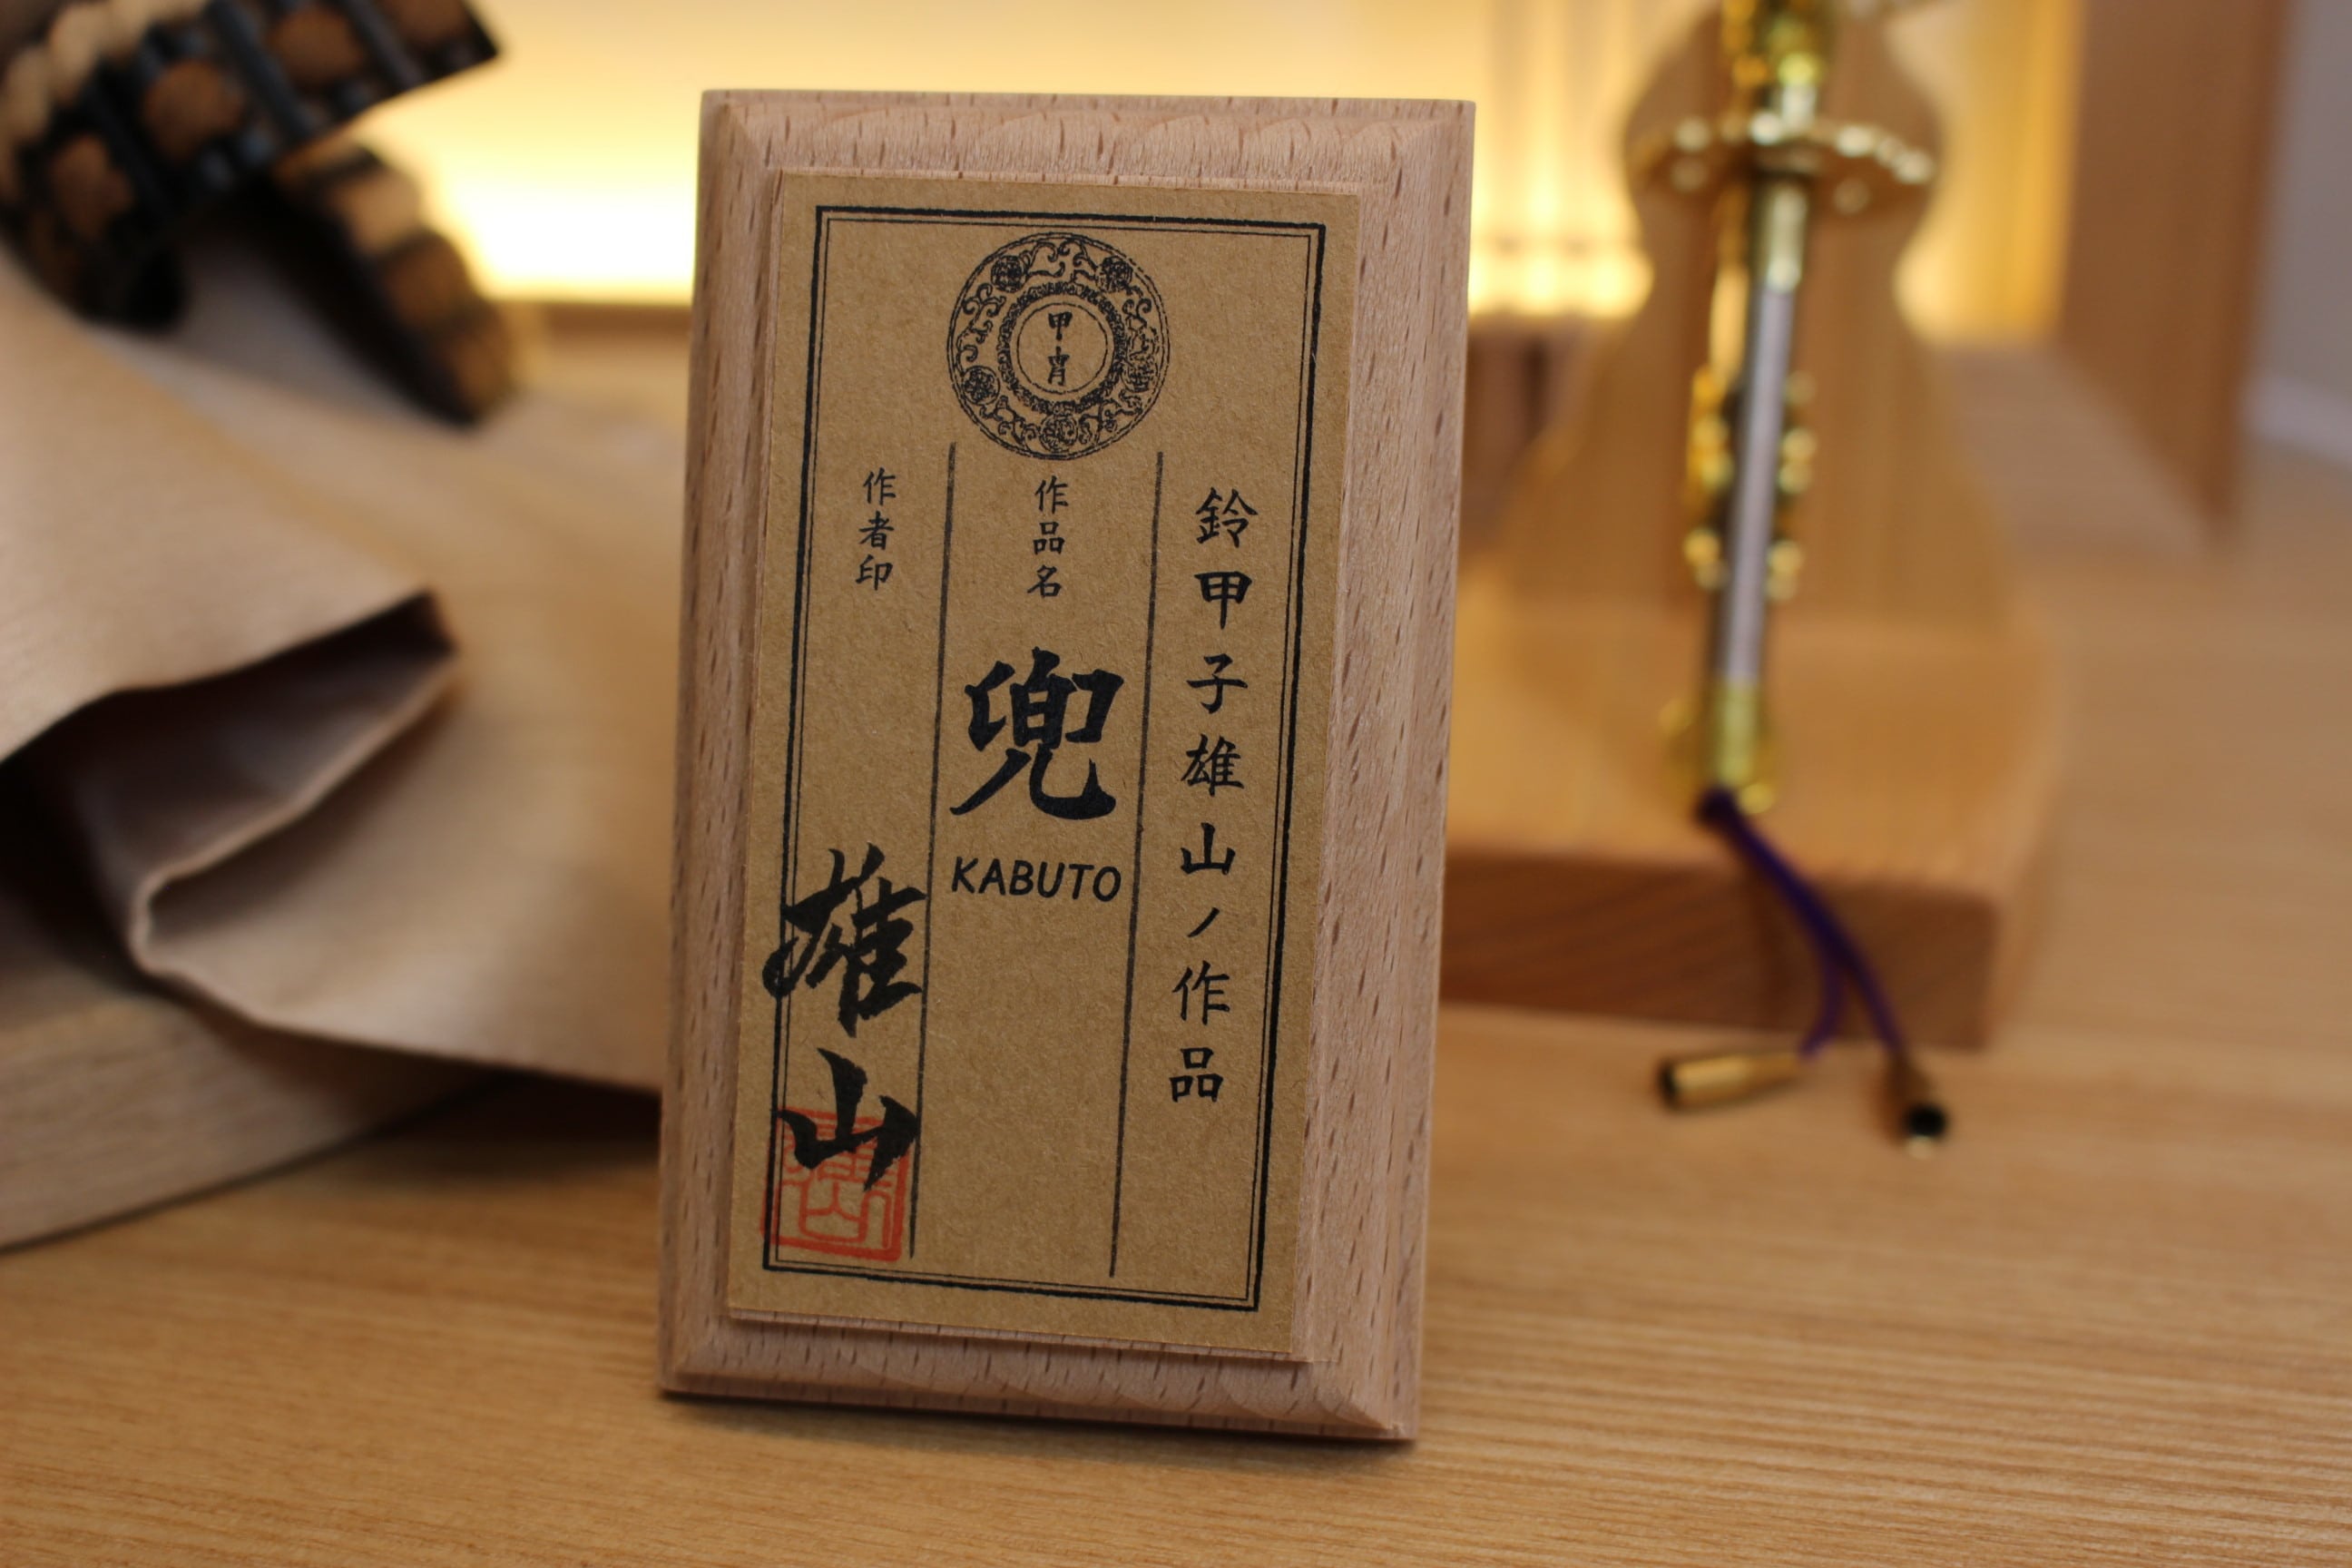 甲冑
鈴甲子雄山ノ作品
作品名
兜
KABUTO
作者印
雄山